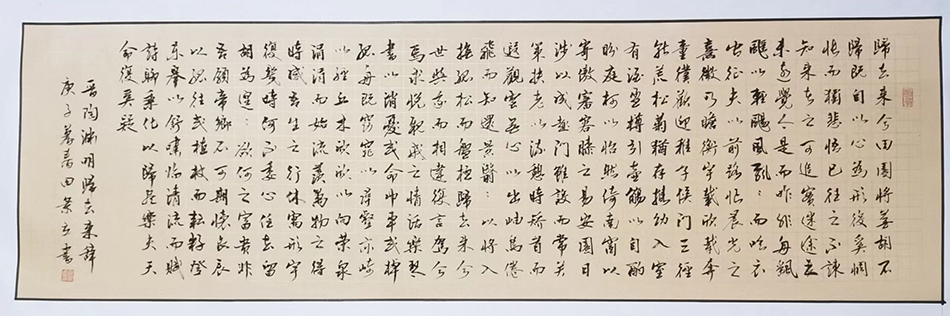 歸去来兮田園將蕪胡不
歸既自以心爲形役奚惆
悵而獨悲悟已往之不諫
知来者之可追實迷途其
未遠覺今是而昨非舟颻
颻以輕颺風飄飄而吹衣
問征夫以前路恨晨光之
熹微乃瞻衡宇載欣載奔
童僕歡迎稚子候門三徑
就荒松菊猶存攜幼入室
有酒盈樽引壺觴以自酌
眄庭柯以怡顔倚南窗以
寄傲審容膝之易安園日
涉以成趣門雖設而常關
策扶老以流憩時矯首而
遐觀雲無心以出岫鳥倦
飛而知還景翳翳以將入
撫孤松而盤桓歸去来兮
世與我而相違復言駕兮
焉求悦親戚之情話樂琴
書以消憂或命巾車或棹
孤舟既窈窕以尋壑亦崎
以經丘木欣欣以向榮泉
涓涓而始流羨萬物之得
時感吾生之行休寓形宇
復幾時何不委心任去留
胡爲遑遑欲何之富貴非
吾願帝鄉不可期懷良辰
以孤往或植杖而耘耔登
東皋以舒嘯臨清流而賦
詩聊乘化以歸盡樂夫天
命復奚疑
晋陶淵明歸去来辭
庚子暮春田書